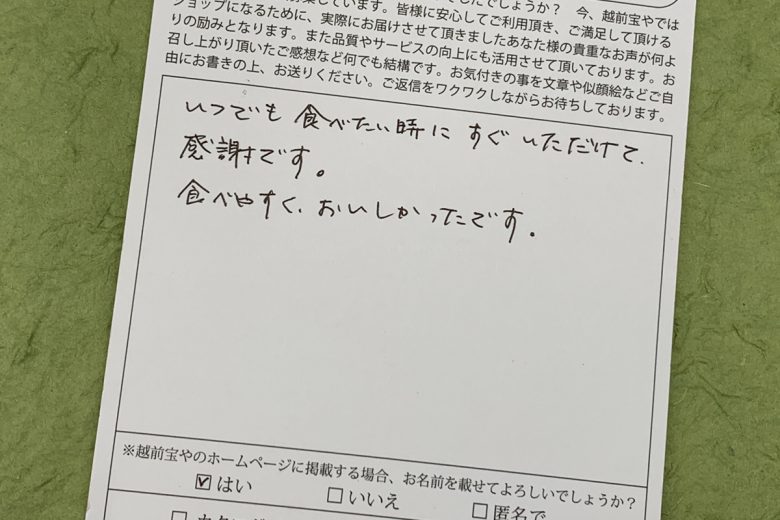 でしたでしょうか？　今、越前宝やでは
しています。皆様に安心してご利用頂き、ご満足して頂ける
ショップになるために、実際にお届けさせて頂きましたあなた様の貴重なお声が何よ
りの励みとなります。また品質やサービスの向上にも活用させて頂いております。お
召し上がり頂いたご感想など何でも結構です。お気付きの事を文章や似顔絵などご自
由にお書きの上、お送りください。ご返信をワクワクしながらお待ちしております。
いつでも 食べたい時に すぐ いただけて、
感謝です。
食べやすく、おいしかったです。
※越前宝やのホームページに掲載する場合、お名前を載せてよろしいでしょうか？
☑はい　□いいえ　□匿名で